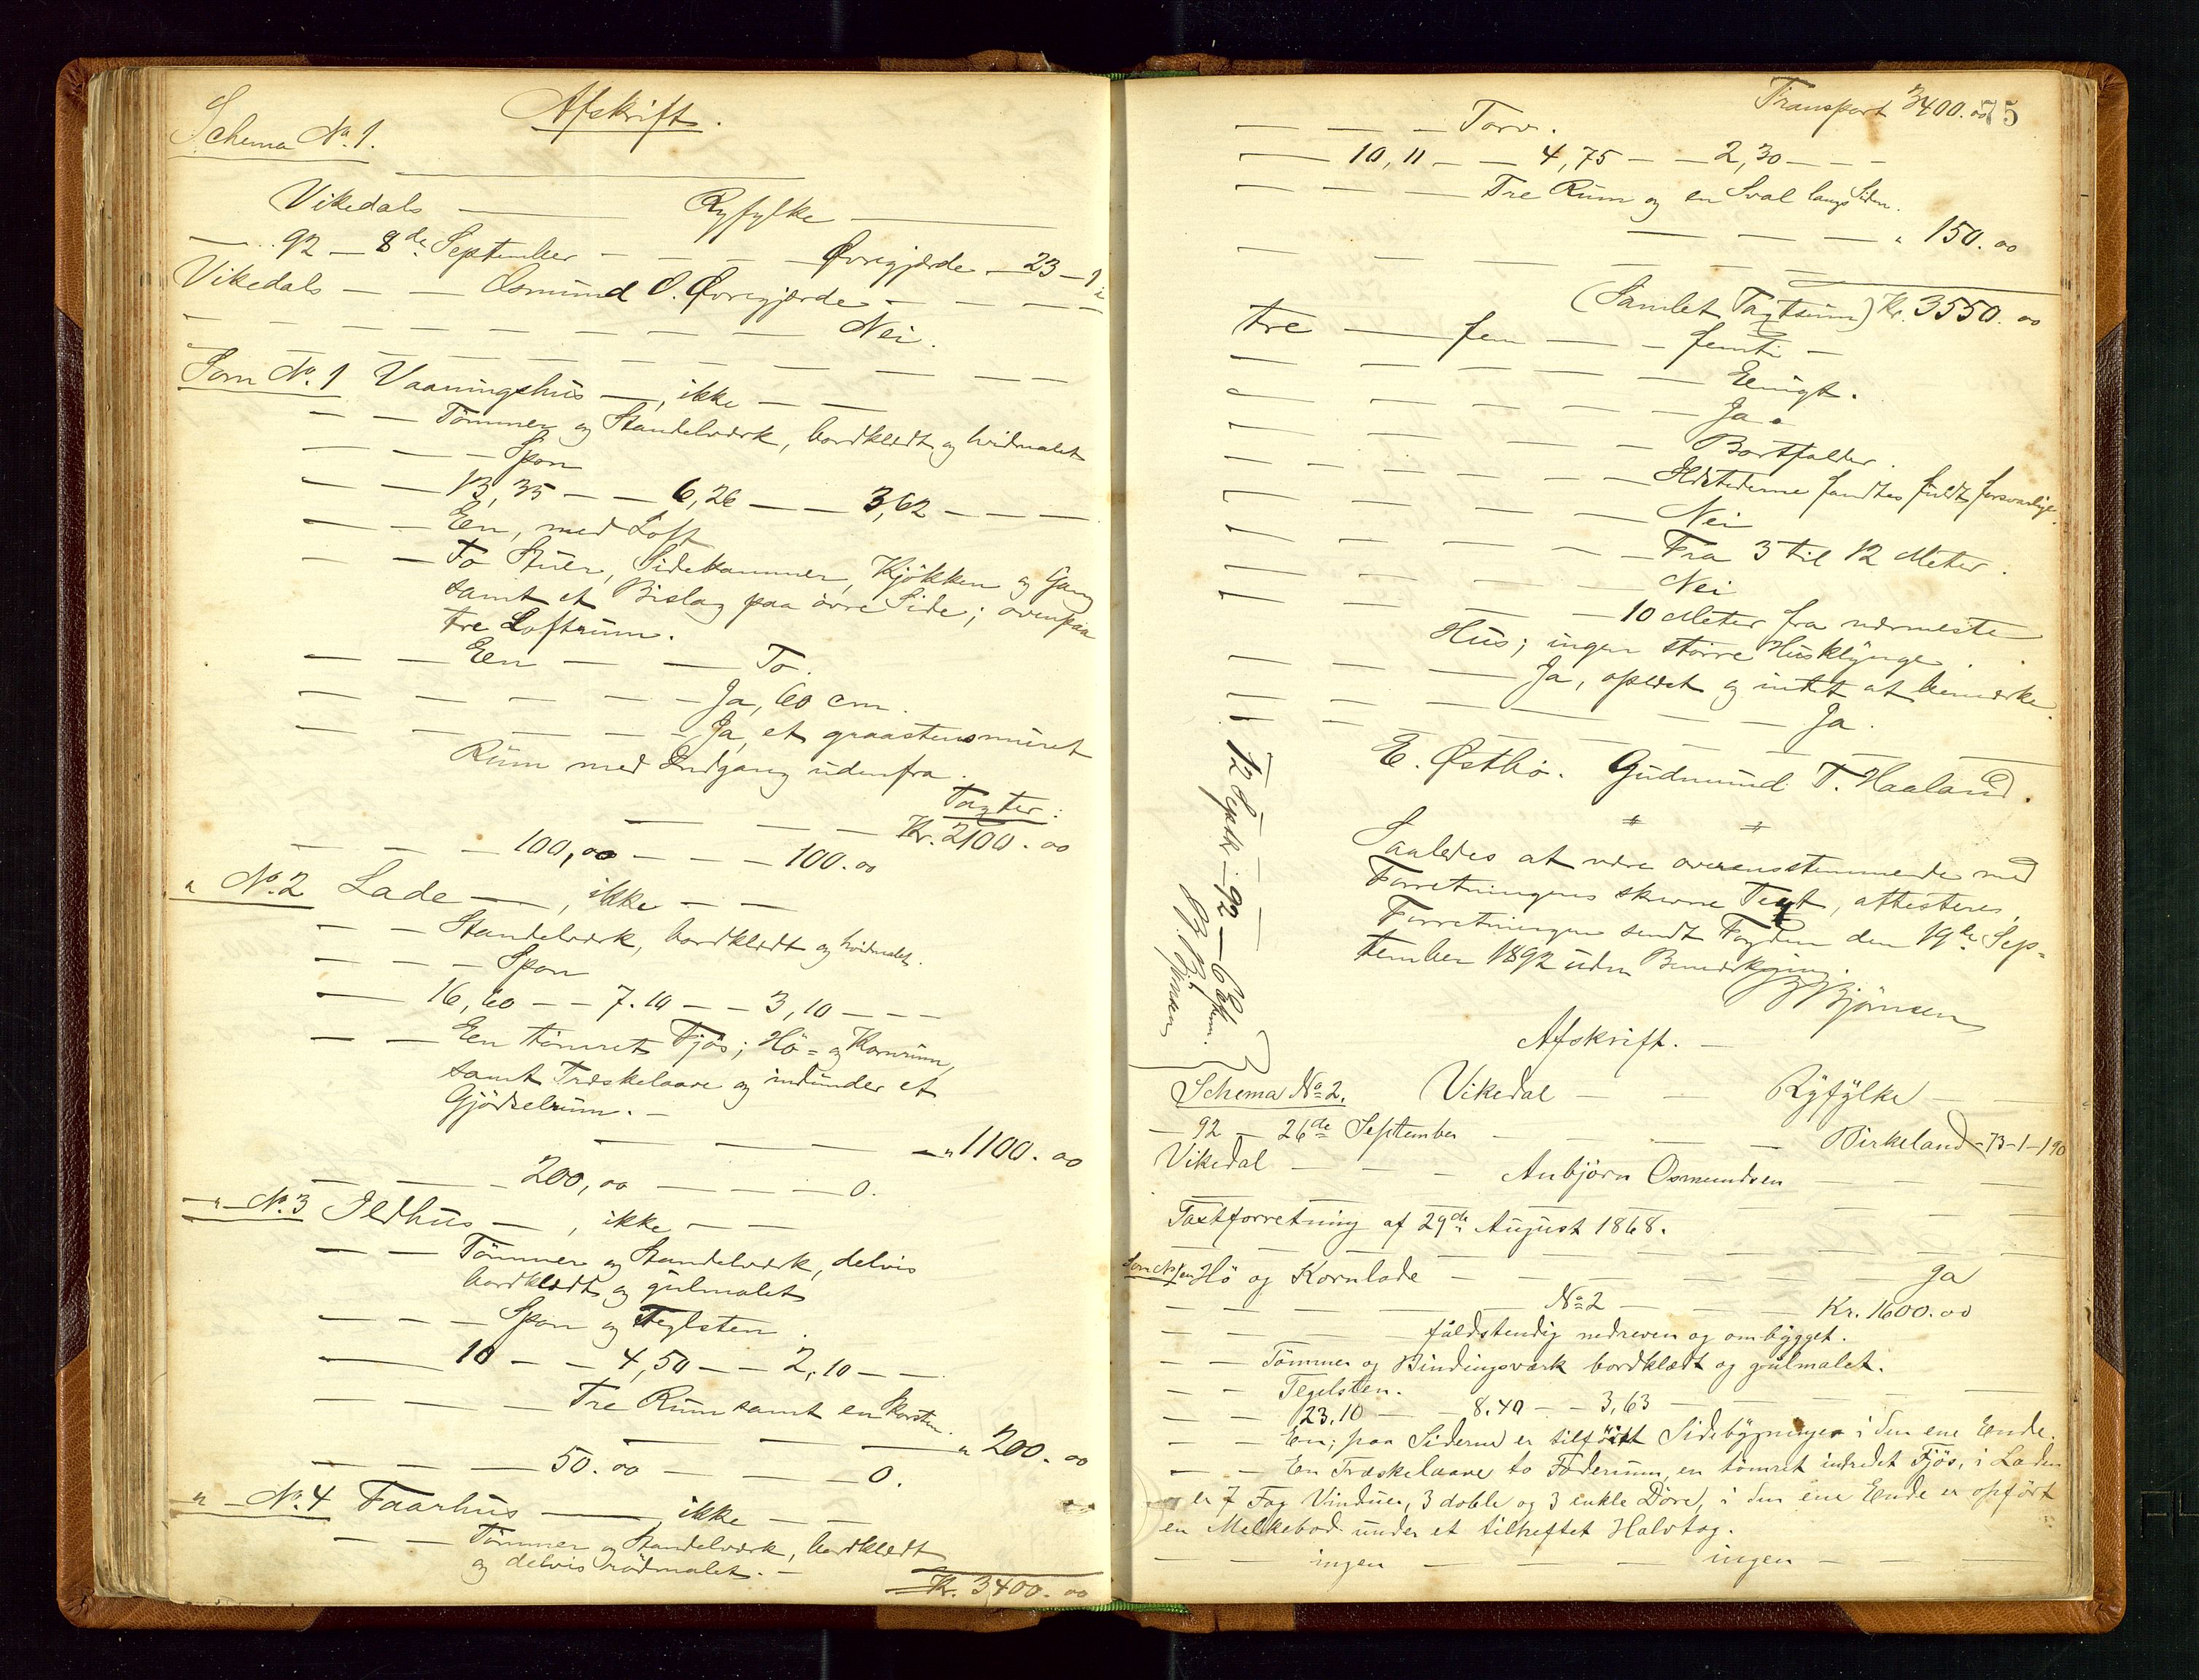 Afskrift.
Schema No. 1.
Vikedals — Ryfylke —
— 92 — 8de September — — — Øvregjærde — 23 — 1 i
Vikedals — — Osmund O. Øvregjærde — — — —
— — — — — — — — Nei.
— — — — — — — — — —
Som No. 1 Vaaningshus —, ikke — —
— — Tømmer og Standelværk, bordklædt og hvidmalet
— — — Spon
— — 13,35 — — 6,26 — — 3,62 — — —
— — Een, med Loft
— — To Stuer, Sidekammer, Kjökken og Gang
samt et Bislag paa övre Side; ovenpaa
tre Loftrum.
— — Een — — To.
— — — — — — Ja, 60 cm.
— — — — — — Ja, et graastensmuret
Rum med Indgang udenfra.
Taxter:
— — — Kr. 2100.00
— — — 100,00 — — — 100.00
" No. 2 Lade —, ikke — —
— — Standelværk, bordklædt og hvidmalet.
— — — Spon
— 16,60 — — 7.10 — — 3,10 — — —
— — Een tömret Fjös; Hö- og Kornrum,
samt Træskelaave og indunder et
Gjödselrum. —
— — — — " 1100.00
— — — 200,00 — — — 0.
" No. 3 Ildhus —, ikke — —
— — Tömmer og Standelværk, delvis
bordklædt og gulmalet
— — — Spon og Teglsten.
— 10 — — 4,50 — — 2,10 — —
— — — Tre Rum samt en Skorsten.
— — — " 200.00
— — — 50.00 — — — 0.
" No. 4 Faarhus —, ikke — —
— — Tömmer og Standelværk, bordklædt
og delvis rödmalet. —
Kr. 3400.00
Transport 3400.00
75
— — — Torv.
— 10,11 — — 4,75 — — 2,30 — — —
— — — Tre Rum og en Sval langs Siden.
— — — " 150.00
(Samlet Taxtsum) Kr. 3550.00
tre — fem — femti —
— — — — — Eenigt.
— — — — — Ja.
— — — — — Bortfalder.
— — — — — Ildstederne fandtes fuldt forsvarlige.
— — — — — Nei
— — — — — Fra 3 til 12 Meter.
— — — — — Nei
— — — — 10 Meter fra nærmeste
Hus; ingen större Husklynge.
— — — — Ja, oplæst og intet at bemærke.
— — — — — — Ja.
E. Østbö. Gudmund T. Haaland.
Saaledes at være overensstemmende med
Forretningens skrevne Text, attesteres.
Forretningen sendt Fogden den 19de Sep-
tember 1892 uden Bemærkning.
Björnsen
12 Septbr. — 92 — 6 Exem.
Björnsen
Afskrift. —
Schema No. 2. Vikedal — — Ryfylke — —
— 92 — 26de September — — — — Birkeland — 73 — 1 — 190
Vikedal — — — Anbjörn Osmundsen — — —
Taxtforretning af 29de August 1868.
Som No. 1 en Hö og Kornlade — — — — — — Ja
— — — — No. 2 — — — Kr. 1600.00
— — — — fuldstendig nedreven og ombygget.
— — Tömmer og Bindingsværk bordklædt og gulmalet.
— — Tegelsten.
— — 23.10 — — 8.40 — — 3,63 — — —
— — En; paa Siderne er tilföiet Sidebygninger i den ene Ende.
— — En Træskelaave to Foderrum, en tömret indredet Fjös, i Laden
er 7 Fag Vinduer, 3 doble og 3 enkle Döre, i den ene Ende er opfört
en Melkebod under et tilheftet Halvtag.
— — ingen — — — ingen — — —